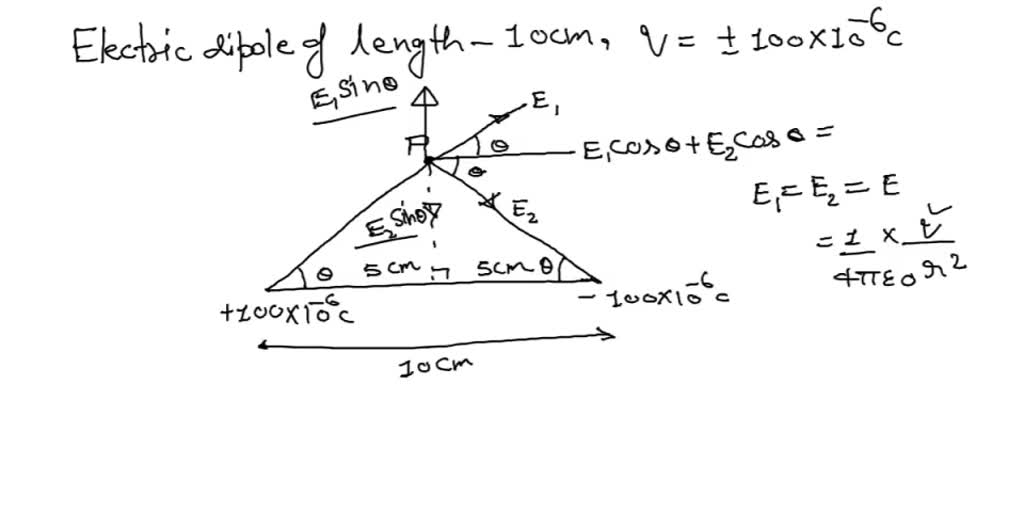 Electric dipole of length - 10cm, q = ± 100×10⁻⁶c
E₁ sinθ
E₁
P
θ
E₁cosθ + E₂cosθ =
θ
E₁ = E₂ = E
E₂
E₂ sinθ
= 1/4πε₀ × q/r²
θ 5cm 5cm θ
+100×10⁻⁶c
- 100×10⁻⁶c
10cm